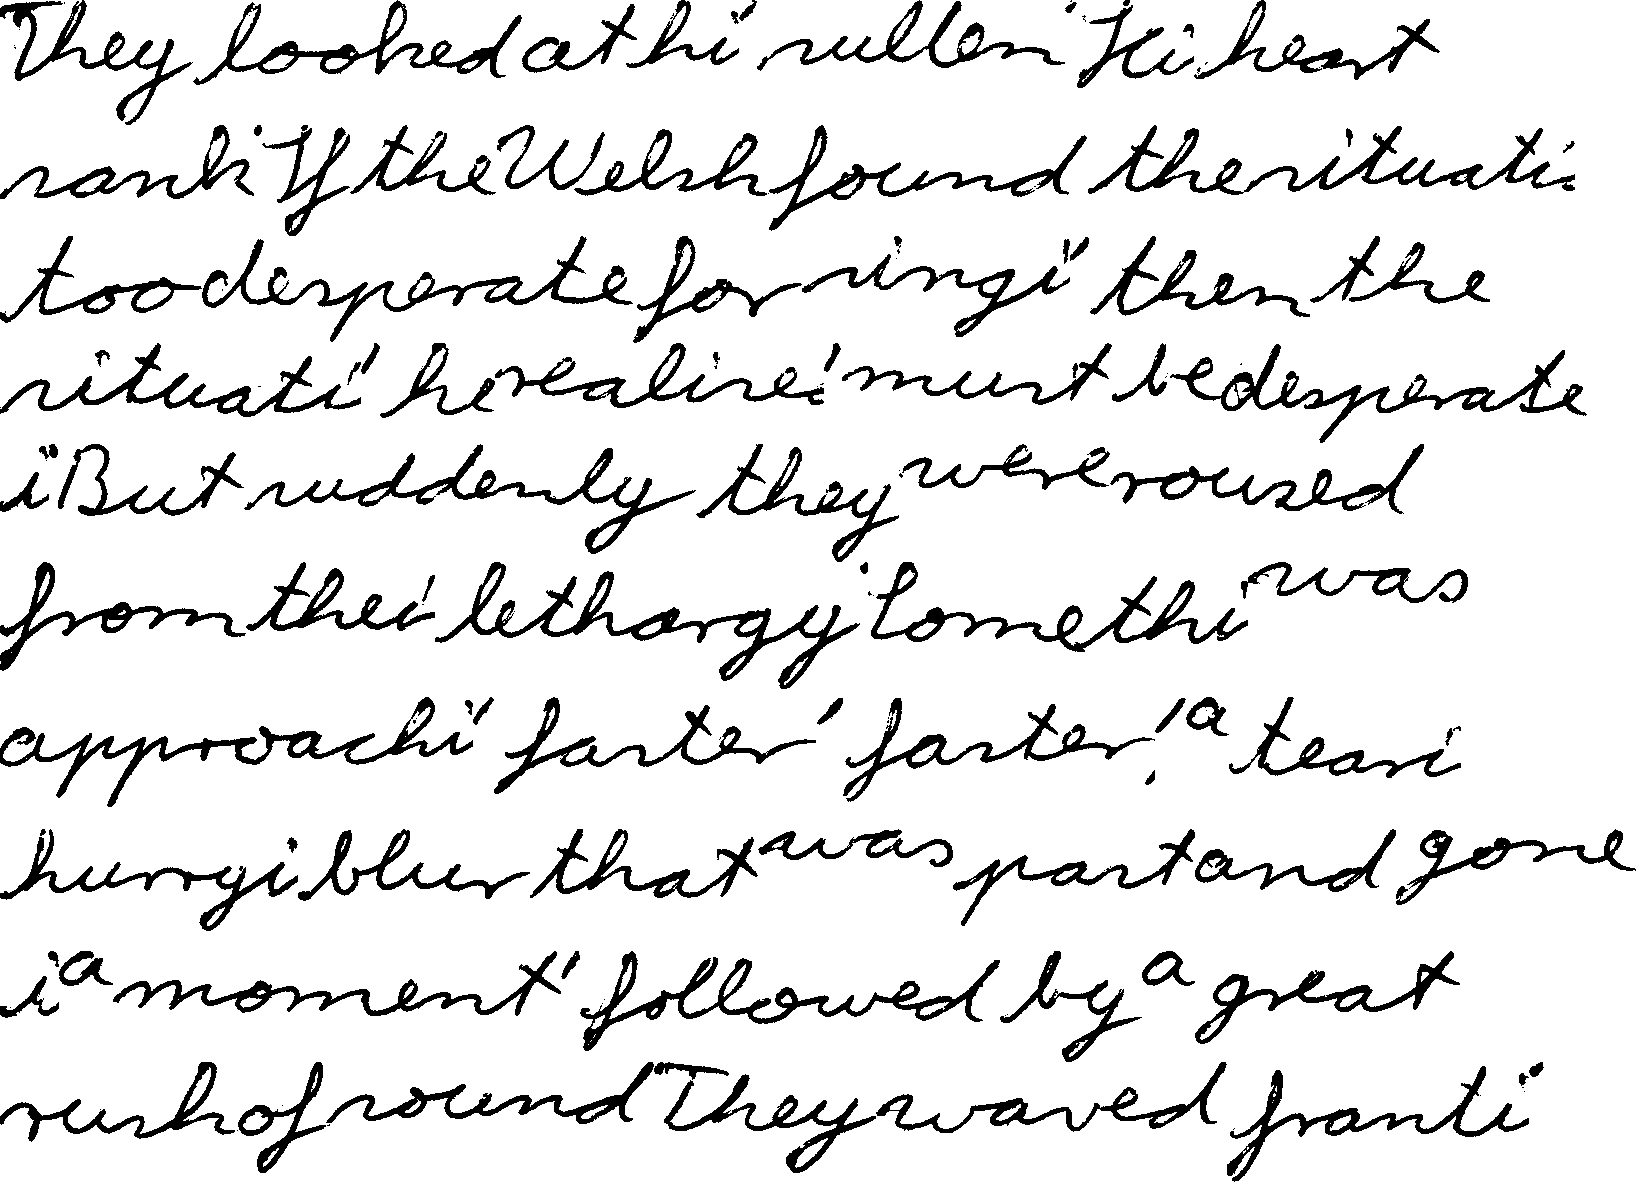 They looked at hi, sullen. Hi heart
sank. If the Welsh found the situati:
too desperate for singi, then the
situati, he realise:, must be desperate
i. But suddenly they were roused
from thei lethargy. Somethi was
approachi, faster, faster,. a teari
hurryi blur that was past and gone
i a moment, followed by a great
rush of sound. They waved franti.